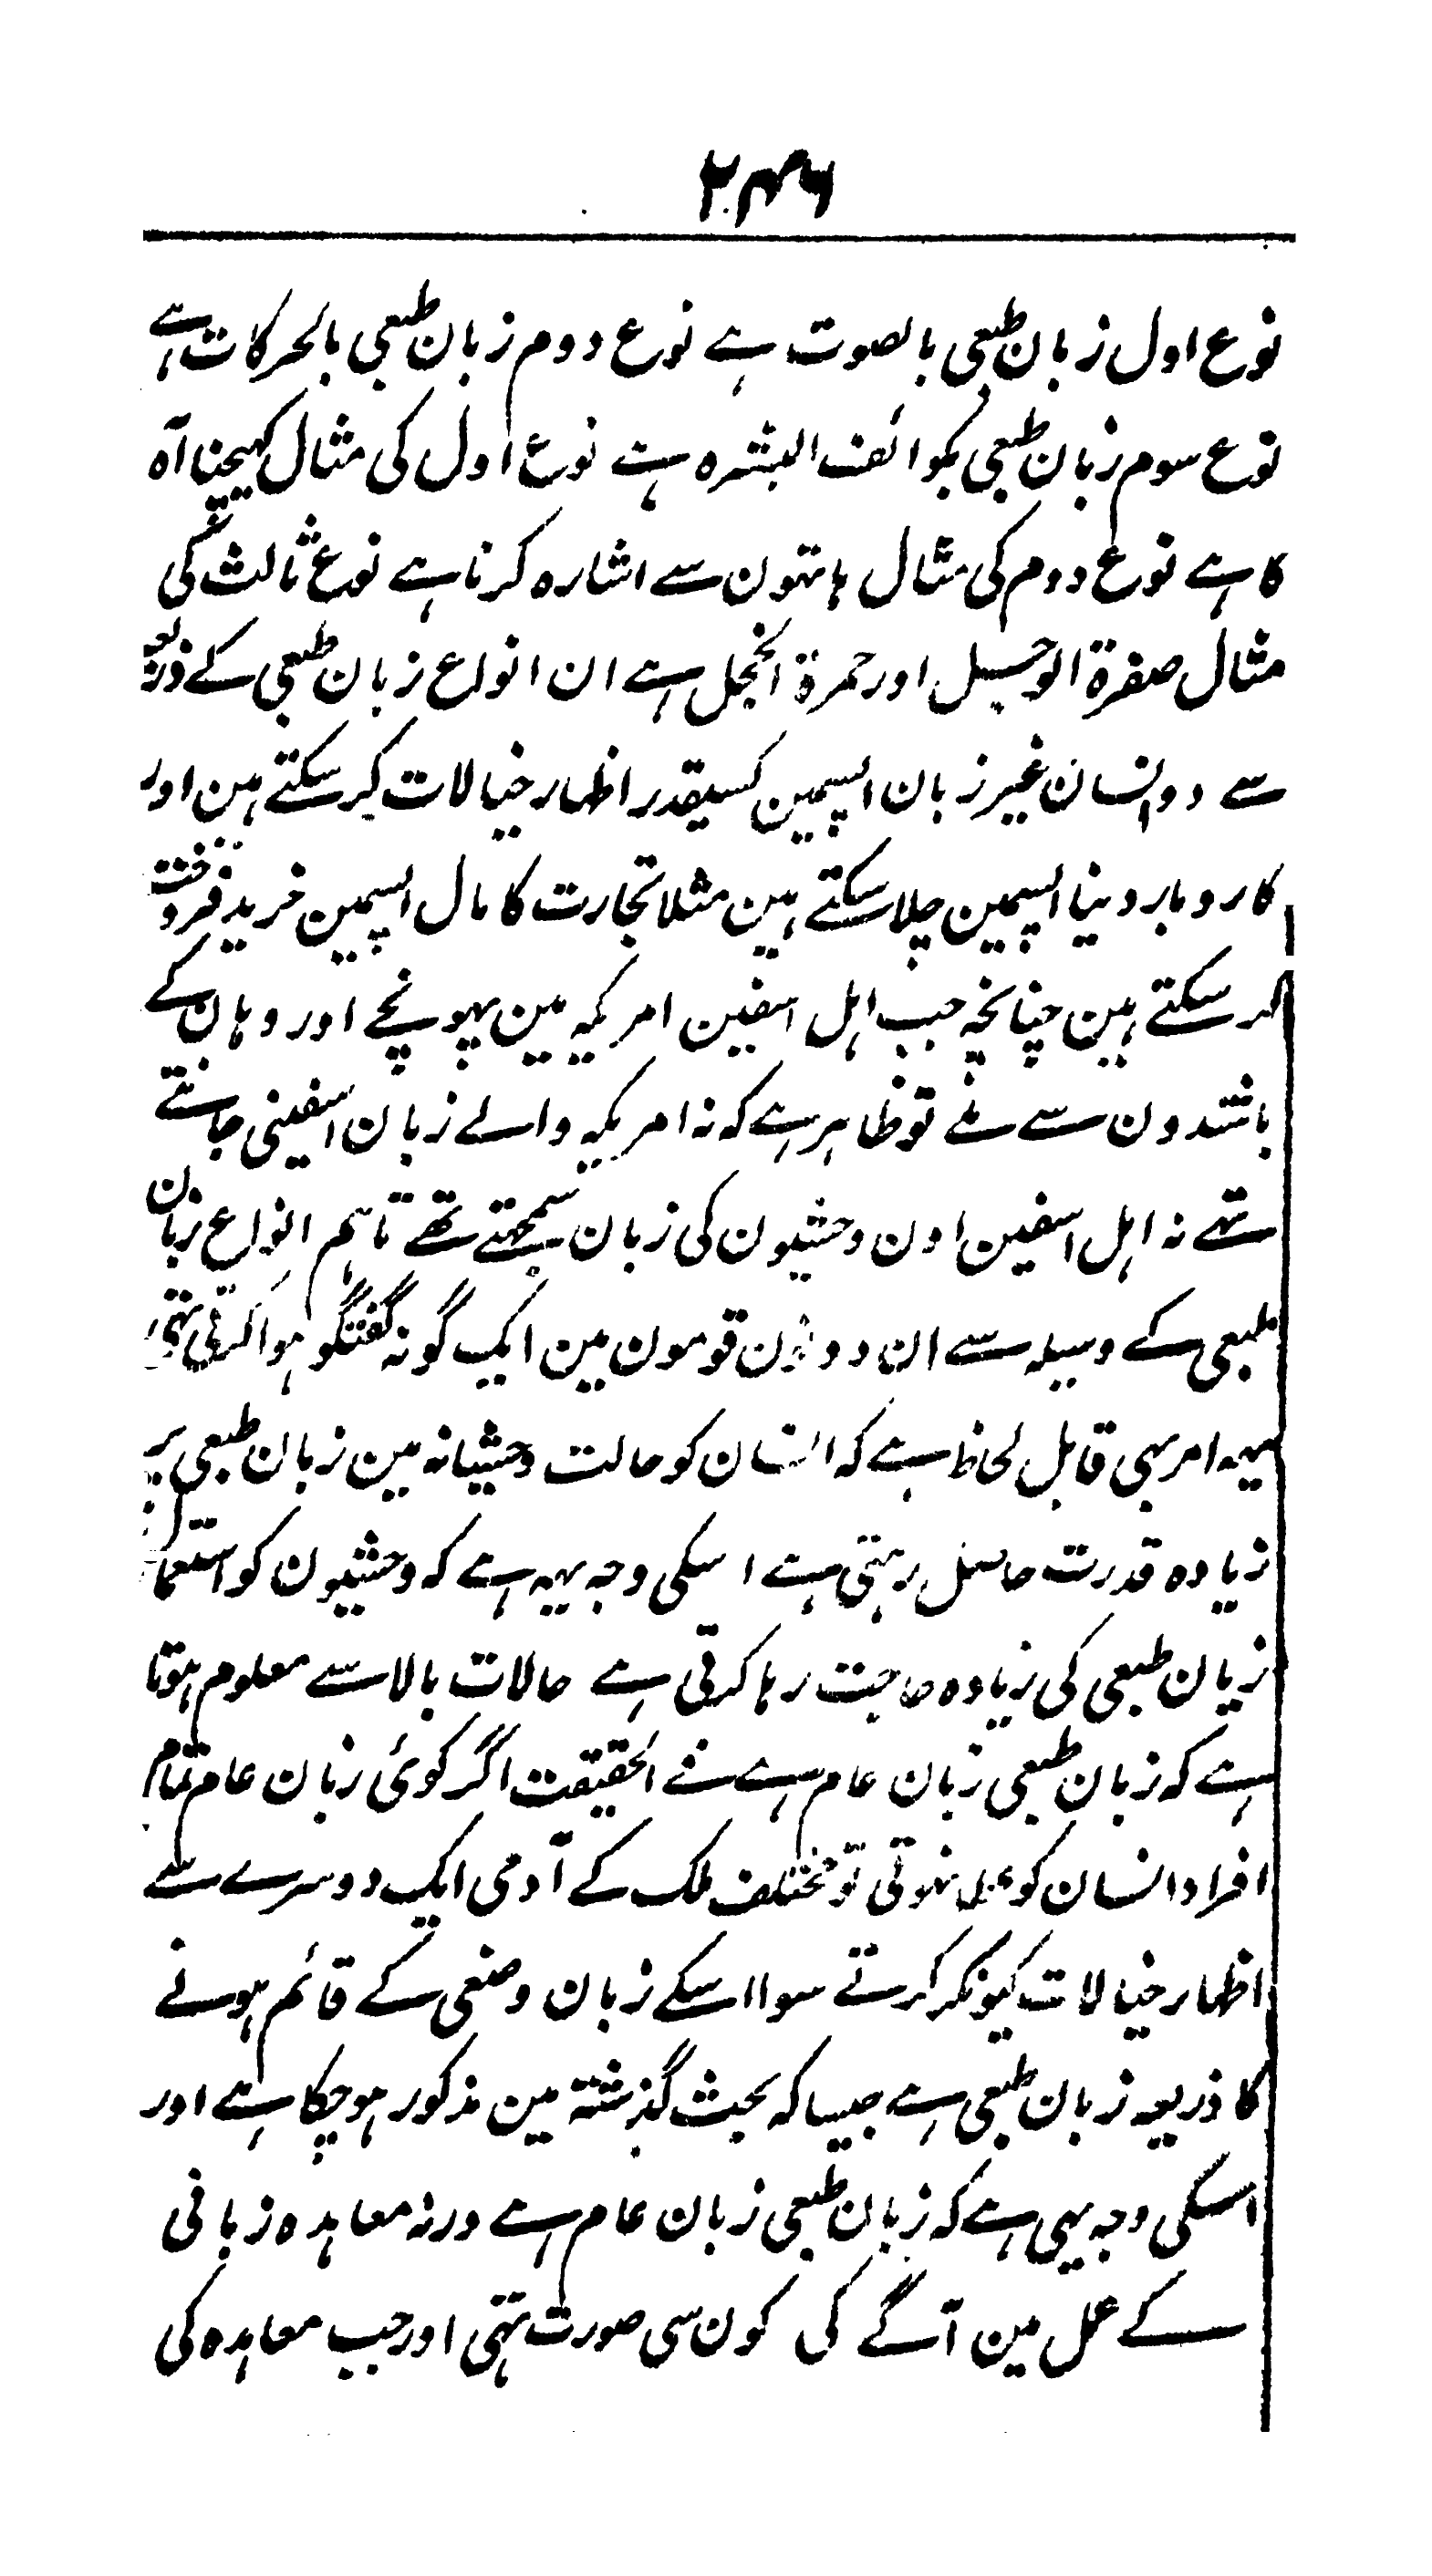 ۲۴۶
نوع اول زبان طبعی بالصوت ہے نوع دوم زبان طبعی بالحرکات ہے
نوع سوم زبان طبعی بکوائف البشرہ ہے نوع اول کی مثال کھیچنا آہ
کا ہے نوع دوم کی مثال ہاتہون سے اشارہ کرنا ہے نوع ثالث کی
مثال صفرۃ الوجیل اور حمرۃ الخجل ہے ان انواع زبان طبعی کے ذریعہ
سے دو انسان غیر زبان اپسمین کسیقدر اظہار خیالات کر سکتے ہین اور
کاروبار دنیا اپسمین چلا سکتے ہین مثلا تجارت کا مال اپسمین خرید فروخت
کر سکتے ہین چنانچہ جب اہل اسفین امریکہ مین پہونچے اور وہان کے
باشندون سے ملے تو ظاہر ہے کہ نہ امریکہ والے زبان اسفینی جانتے
تہے نہ اہل اسفین اون وحشیون کی زبان سمجھتے تھے تاہم انواع زبان
طبعی کے وسیلہ سے ان دونون قومون مین ایک گونہ گفتگو ہوا کرتی تہی
یہہ امر بہی قابل لحاظ ہے کہ انسان کو حالت وحشیانہ مین زبان طبعی پر
زیادہ قدرت حاصل رہتی ہے اسکی وجہ یہہ ہے کہ وحشیون کو استعمال
زبان طبعی کی زیادہ حاجت رہا کرتی ہے حالات بالا سے معلوم ہوتا
ہے کہ زبان طبعی زبان عام ہے فے الحقیقت اگر کوئی زبان عام تمام
افراد انسان کو نہوتی تو مختلف ملک کے آدمی ایک دوسرے سے
اظہار خیالات کیونکر کرتے سوا اسکے زبان وضعی کے قائم ہونے
کا ذریعہ زبان طبعی ہے جیسا کہ بحث گذشتہ مین مذکور ہوچکا ہے اور
اسکی وجہ یہی ہے کہ زبان طبعی زبان عام ہے ورنہ معاہدہ زبانی
کے عمل مین آنے کی کون سی صورت تہی اور جب معاہدہ کی